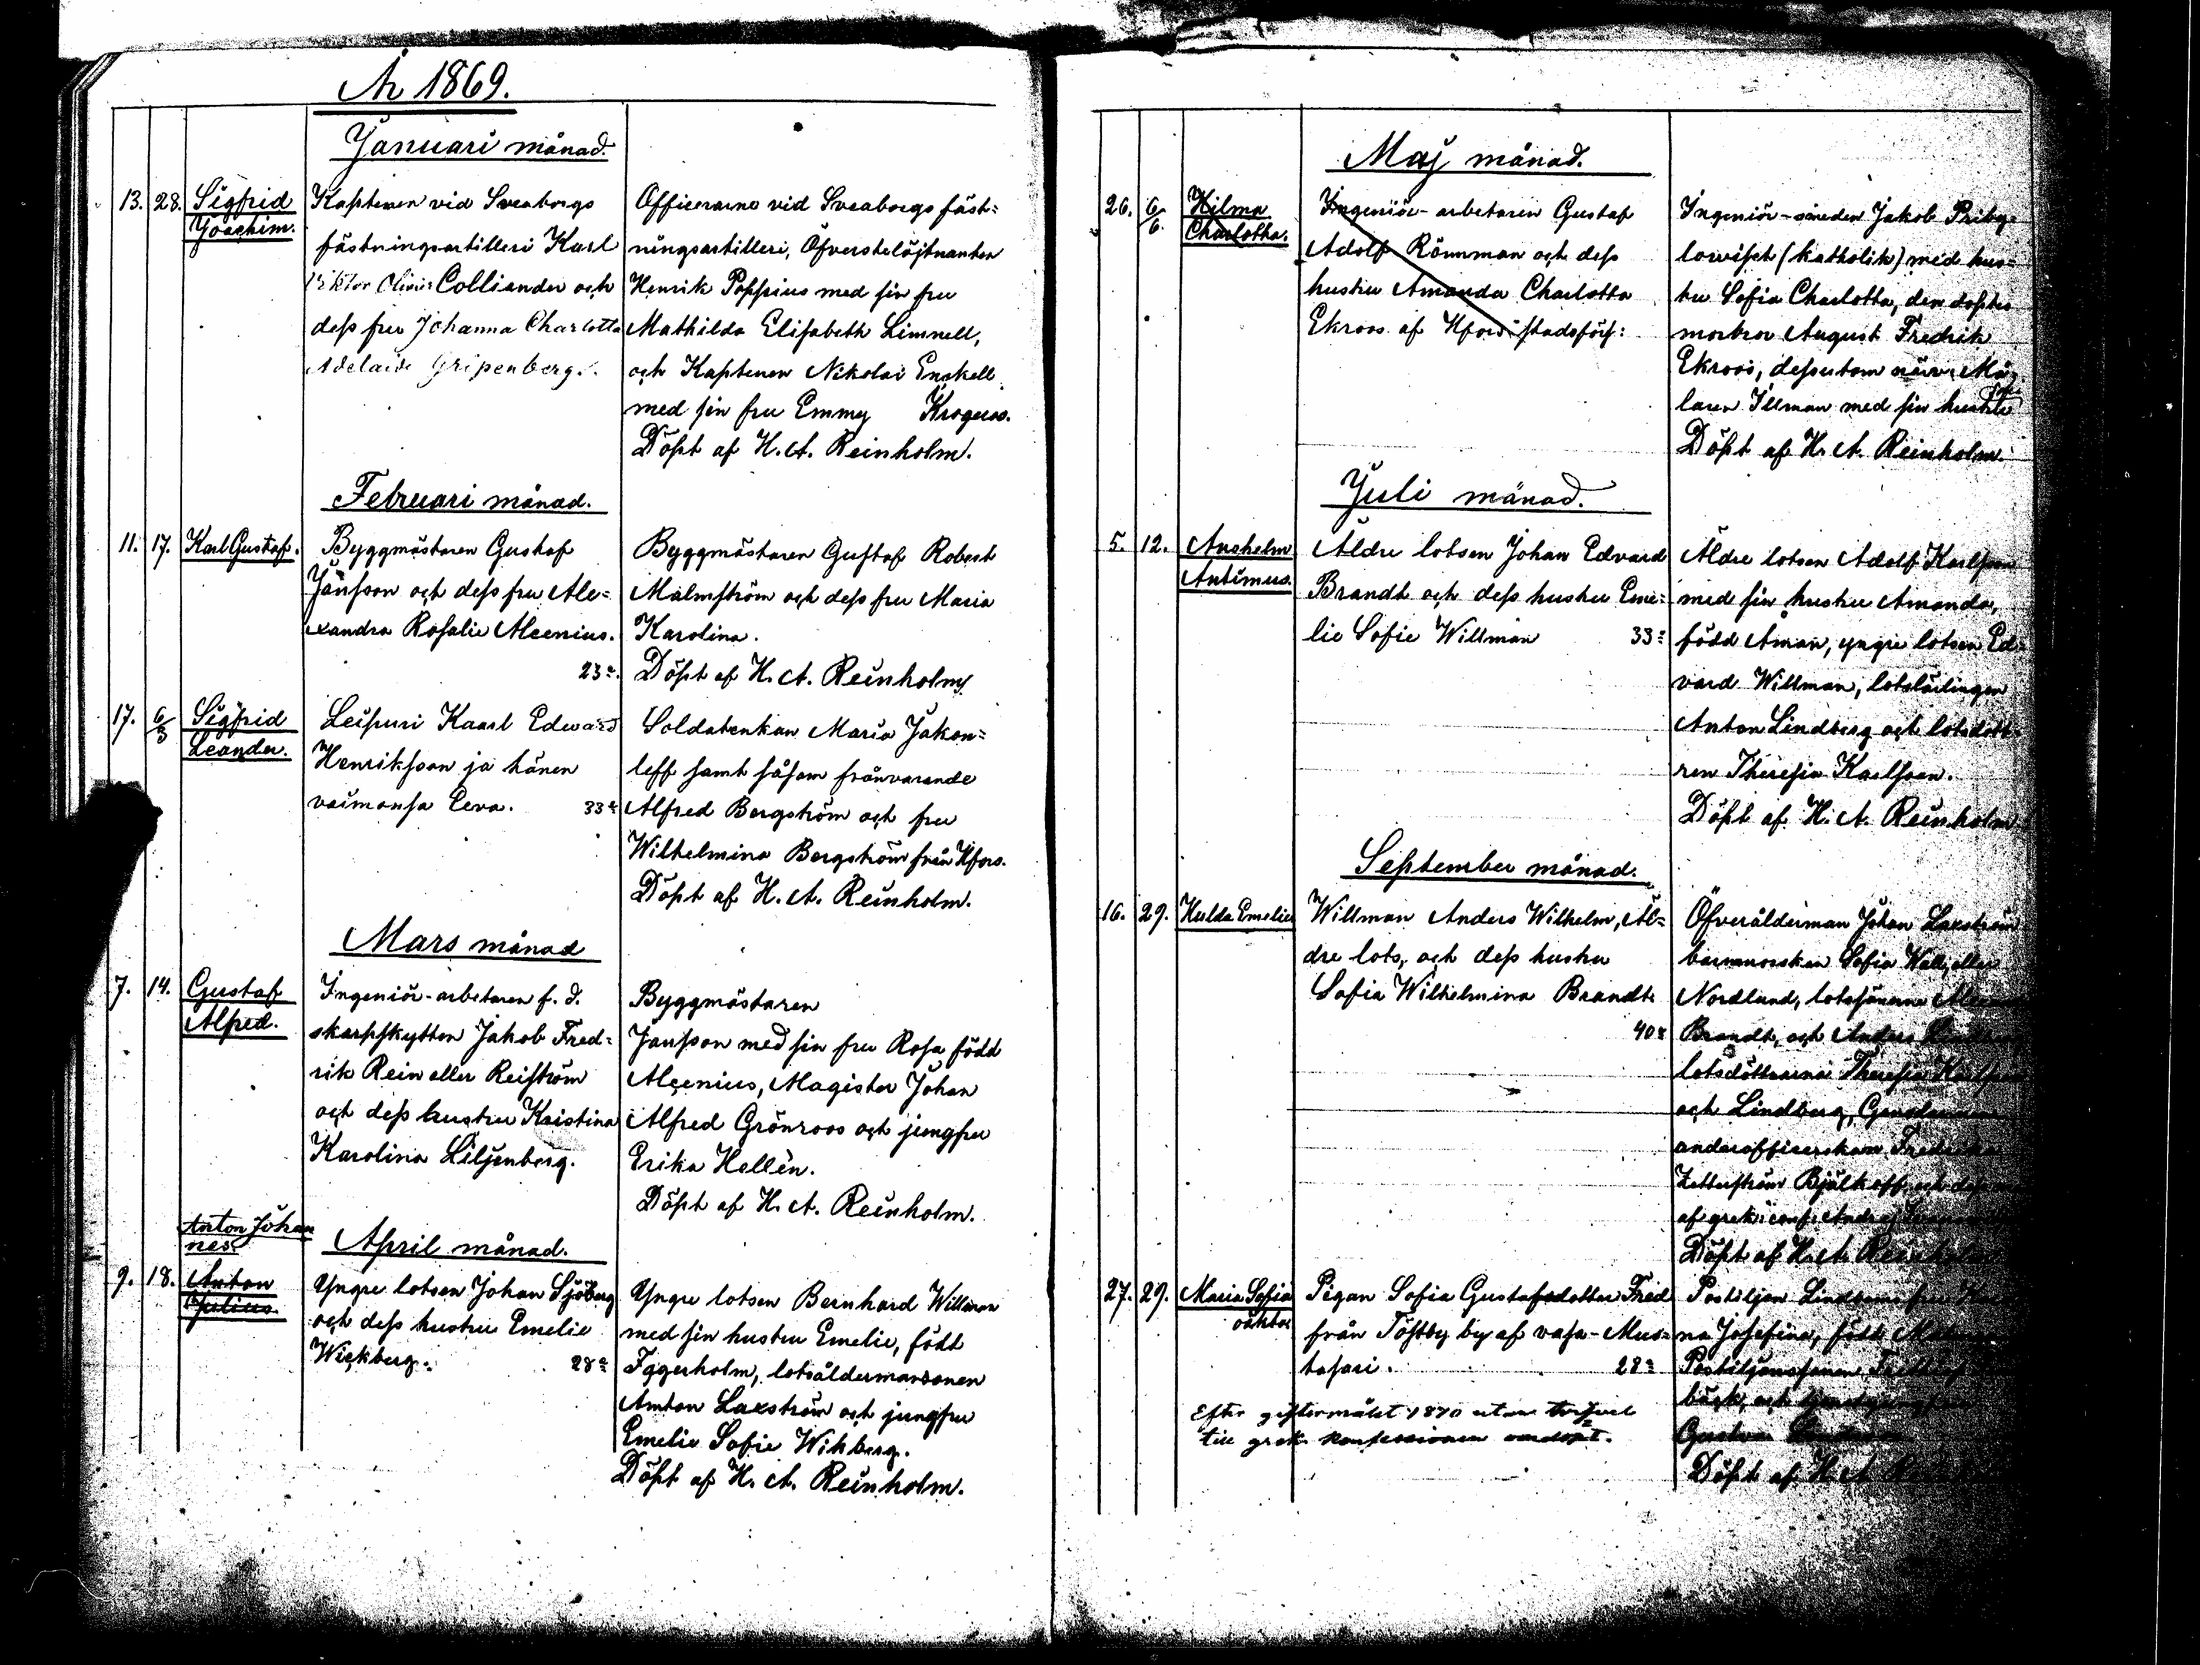 År 1869.
Januari månad.
13. 28. Sigfrid Joachim.
Kaptenen vid Sveaborgs
fästningsartilleri Karl
Viktor Olivier Colliander och
dess fru Johanna Charlotta
Adelaide Gripenberg.
Officerarne vid Sveaborgs fäst-
ningsartilleri, Öfverstelöjtnanten
Henrik Poppius med sin fru
Mathilda Elisabeth Limnell,
och Kaptenen Nikolai Enckell
med sin fru Emmy Krogerus.
Döpt af H. A. Reinholm.
Februari månad.
11. 17. Karl Gustaf.
Byggmästaren Gustaf
Jansson och dess fru Ale-
xandra Rosalie Alcenius.
23 a.
Byggmästaren Gustaf Robert
Malmström och dess fru Maria
Karolina.
Döpt af H. A. Reinholm
17. 6/3 Sigfrid Leander.
Leipuri Kaarl Edward
Henriksson ja hänen
vaimonsa Eeva. 33 a
Soldatenkan Maria Jakon-
leff samt såsom frånvarande
Alfred Bergström och fru
Wilhelmina Bergström från Hfors.
Döpt af H. A. Reinholm.
Mars månad
7. 14. Gustaf Alfred.
Ingeniör-arbetaren f. d.
skarpskytten Jakob Fred-
rik Rein eller Reiström
och dess hustru Kristina
Karolina Liljenberg.
Byggmästaren
Jansson med sin fru Rosa född
Alcenius, Magister Johan
Alfred Grönroos och jungfru
Erika Hellén.
Döpt af H. A. Reinholm.
April månad.
Anton Johan
nes
9. 18. Anton Julius.
Yngre lotsen Johan Sjöberg
och dess hustru Emelie
Wickberg. 28 a
Yngre lotsen Bernhard Willman
med sin hustru Emelie, född
Iggerholm, lotsåldermansonen
Anton Laxström och jungfru
Emelie Sofie Wikberg.
Döpt af H. A. Reinholm.
Maj månad.
26. 6/6 Hilma Charlotta.
Ingeniör-arbetaren Gustaf
Adolf Rönnman och dess
hustru Amanda Charlotta
Ekroos af Hfors stadsförs:
Ingeniör-smeden Jakob
(katholik) med hus-
tru Sofia Charlotta, den döptes
morbror August Fredrik
Ekroos, dessutom Må-
laren Illman med sin hustru
Döpt af H. A. Reinholm.
Juli månad.
5. 12. Anshelm Antimus.
Äldre lotsen Johan Edvard
Brandt och dess hustru Eme-
lie Sofie Willman 33 a
Äldre lotsen Adolf Karlsson
med sin hustru Amanda,
född Åman, yngre lotsen Ed-
vard Willman, lotslärlingen
Anton Lindberg och lotsdott-
ren Theresia Karlsson.
Döpt af H. A. Reinholm
September månad.
16. 29. Hulda Emelia
Willman Anders Wilhelm, Äl-
dre lots, och dess hustru
Sofia Wilhelmina Brandt
40 a
Öfverålderman Johan Laxström
barnmorskan Sofia Wall, eller
Nordlund, lotssönerna
Brandt, och Anders
lotsdöttrarna Theresia
och Lindberg,
underofficerskan
Zetterström Bjälkoff, och
af grek: conf:
Döpt af H. A. Reinholm
27. 29. Maria Sofia oäkta
Pigan Sofia Gustafsdotter Fred
från Töftby by af Vasa-Mus-
tasari. 28 a
Efter giftermålet 1870 utan
till grek. konfessionen
Postiljon
na Josefina, född
Postiljonssonen
och
Döpt af H. A.